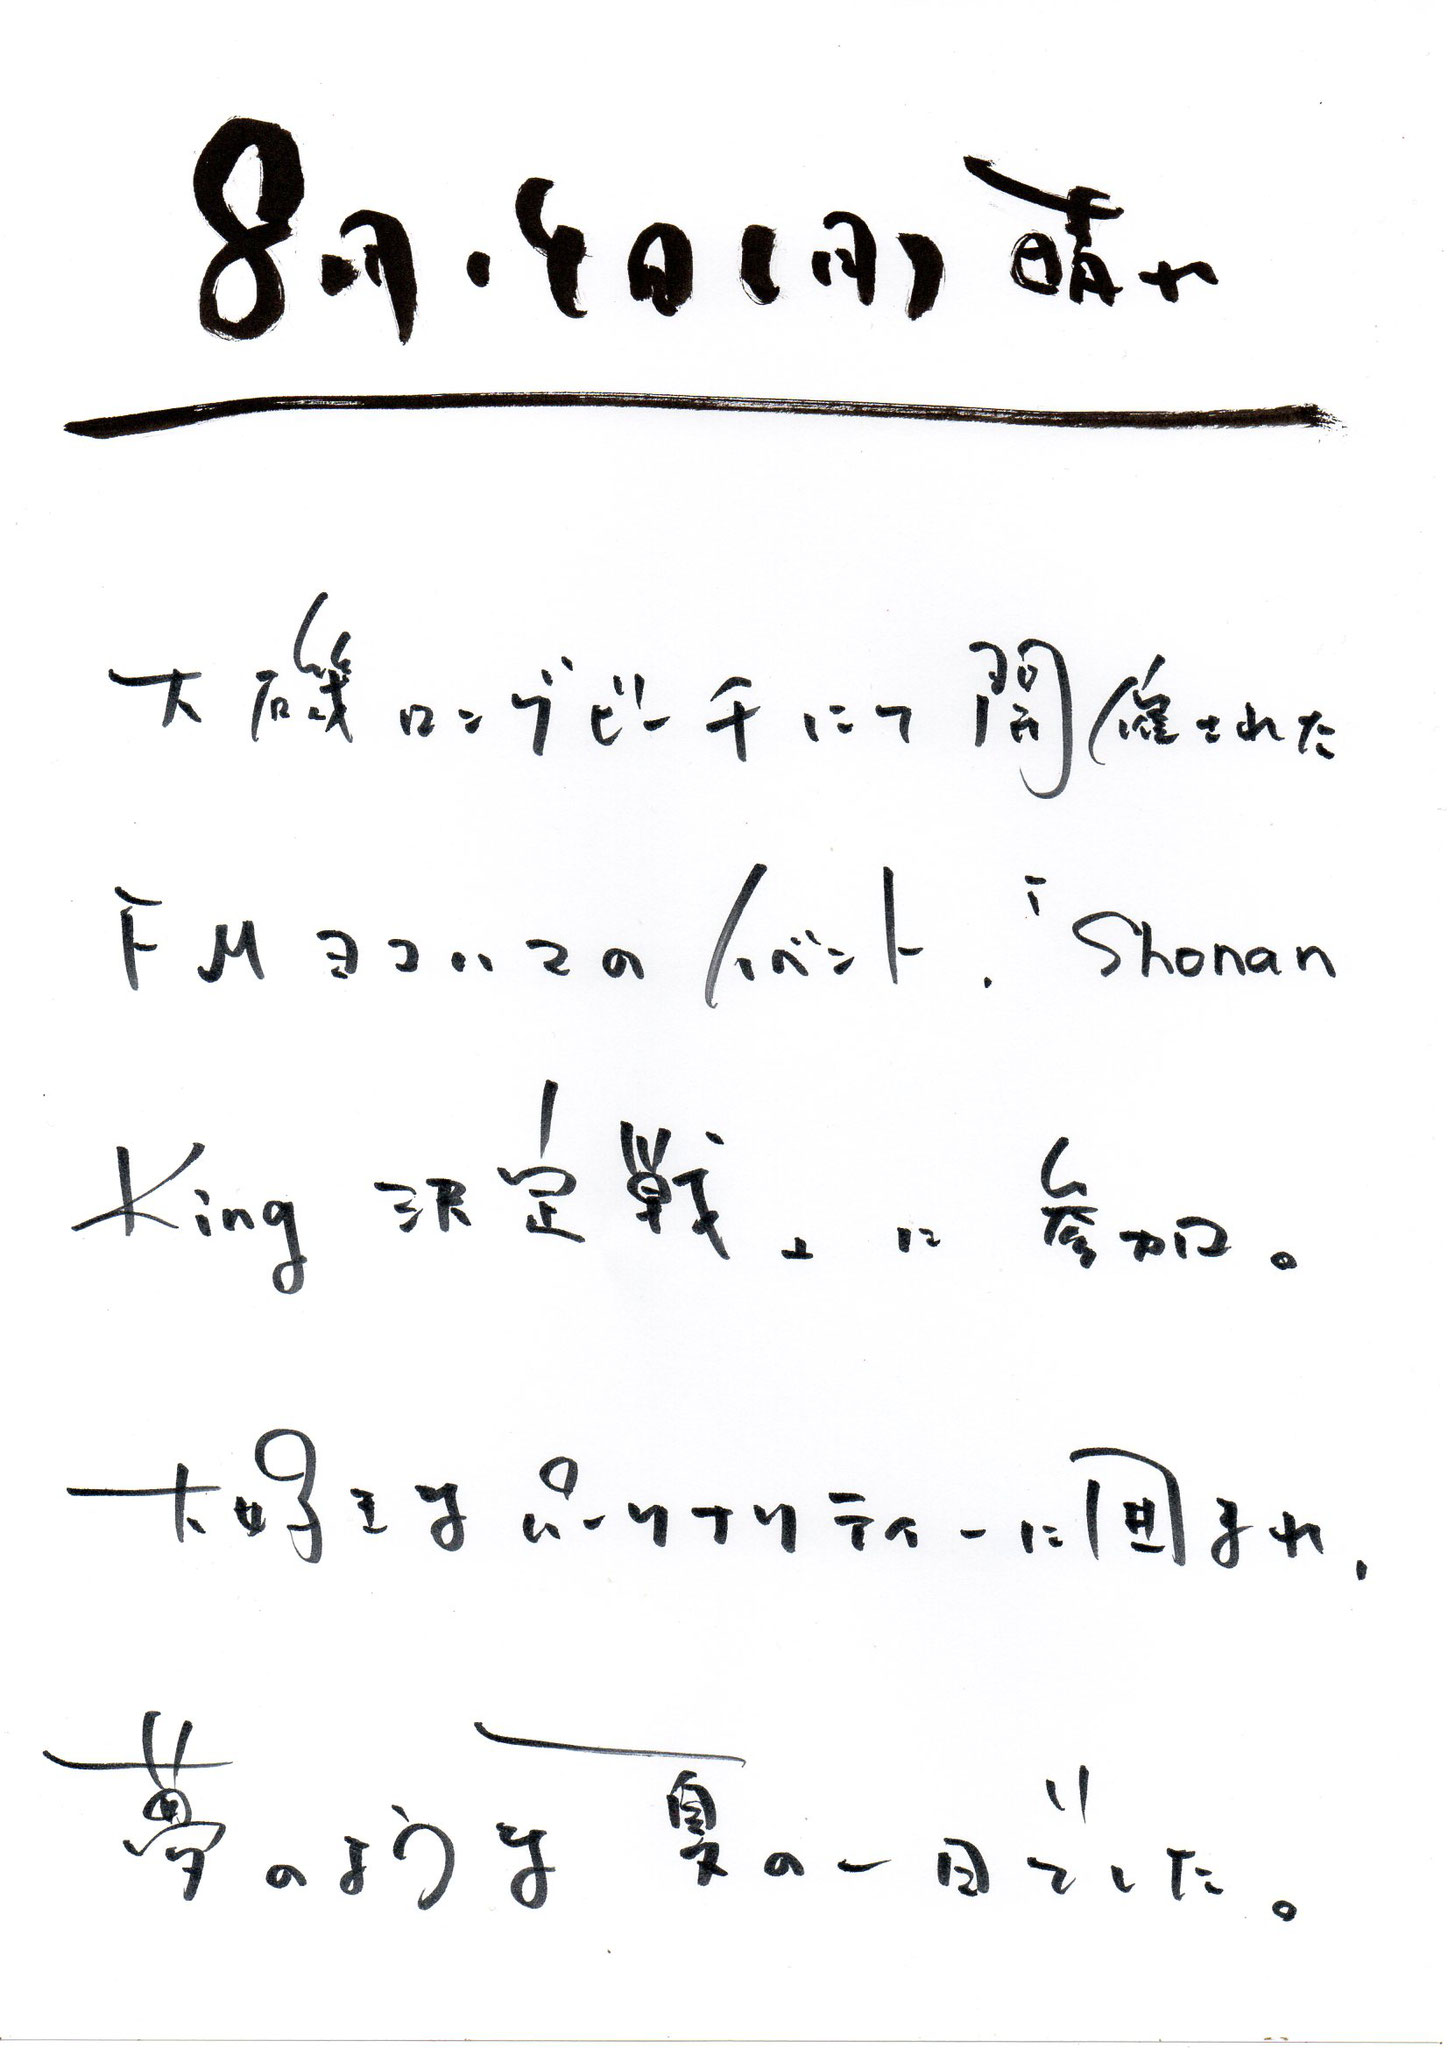 8月.4日(月) 晴れ
大磯ロングビーチにて開催された
FMヨコハマのイベント、「Shonan
King 決定戦」に 参加。
大好きなパーソナリティーに囲まれ、
夢のような 夏の一日でした。